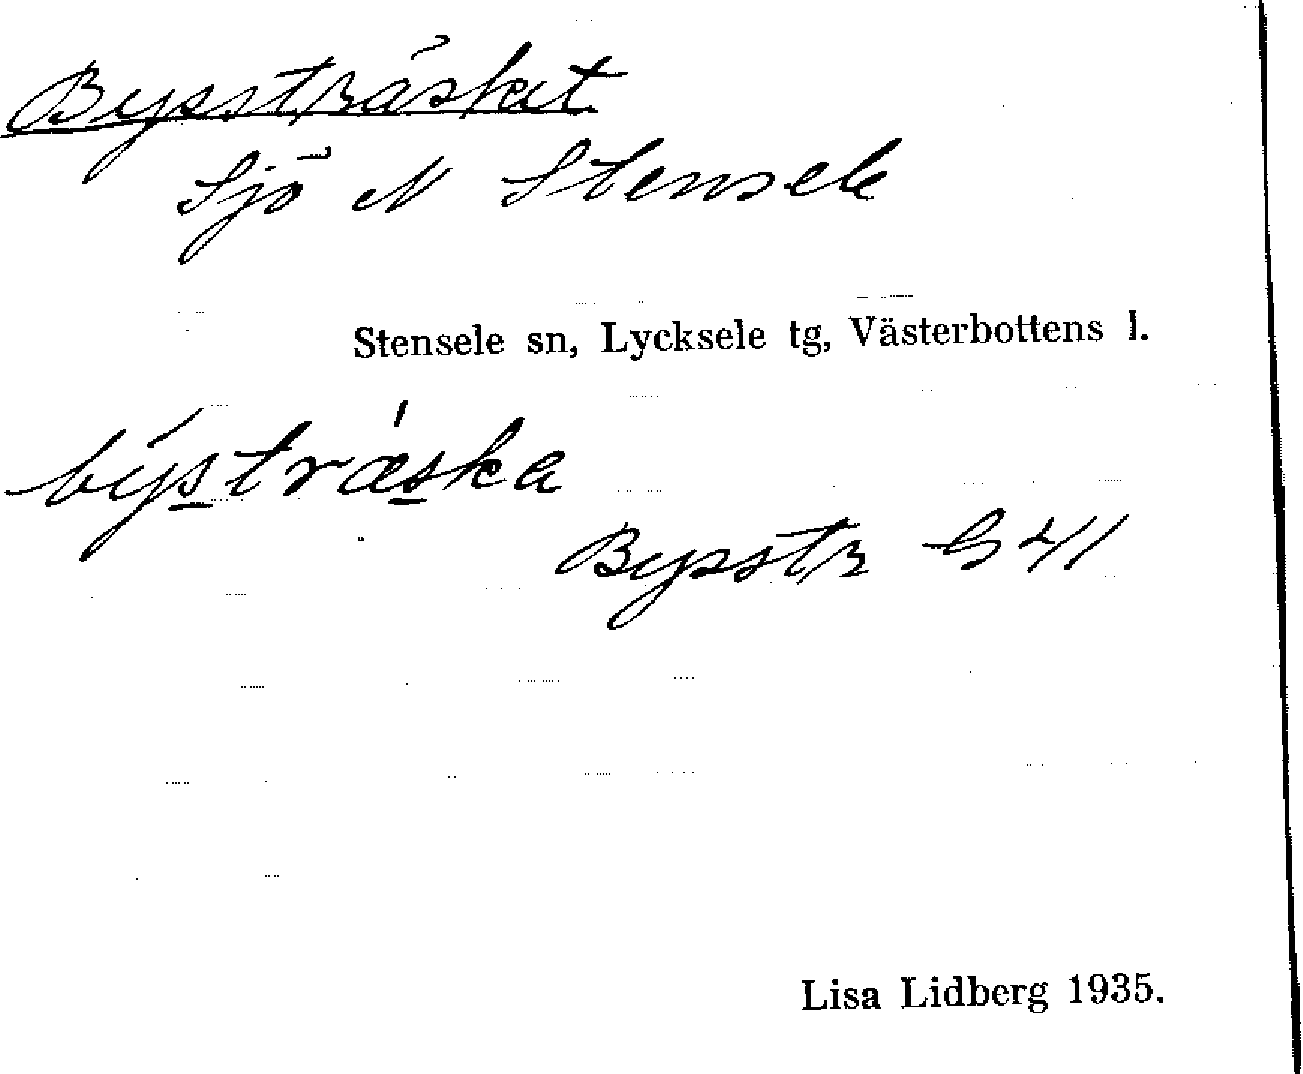 Bysstträsket
Sjö N Stensele
Stensele sn, Lycksele tg, Västerbottens l.
býstrǽska
Bysstr G 41
Lisa Lidberg 1935.